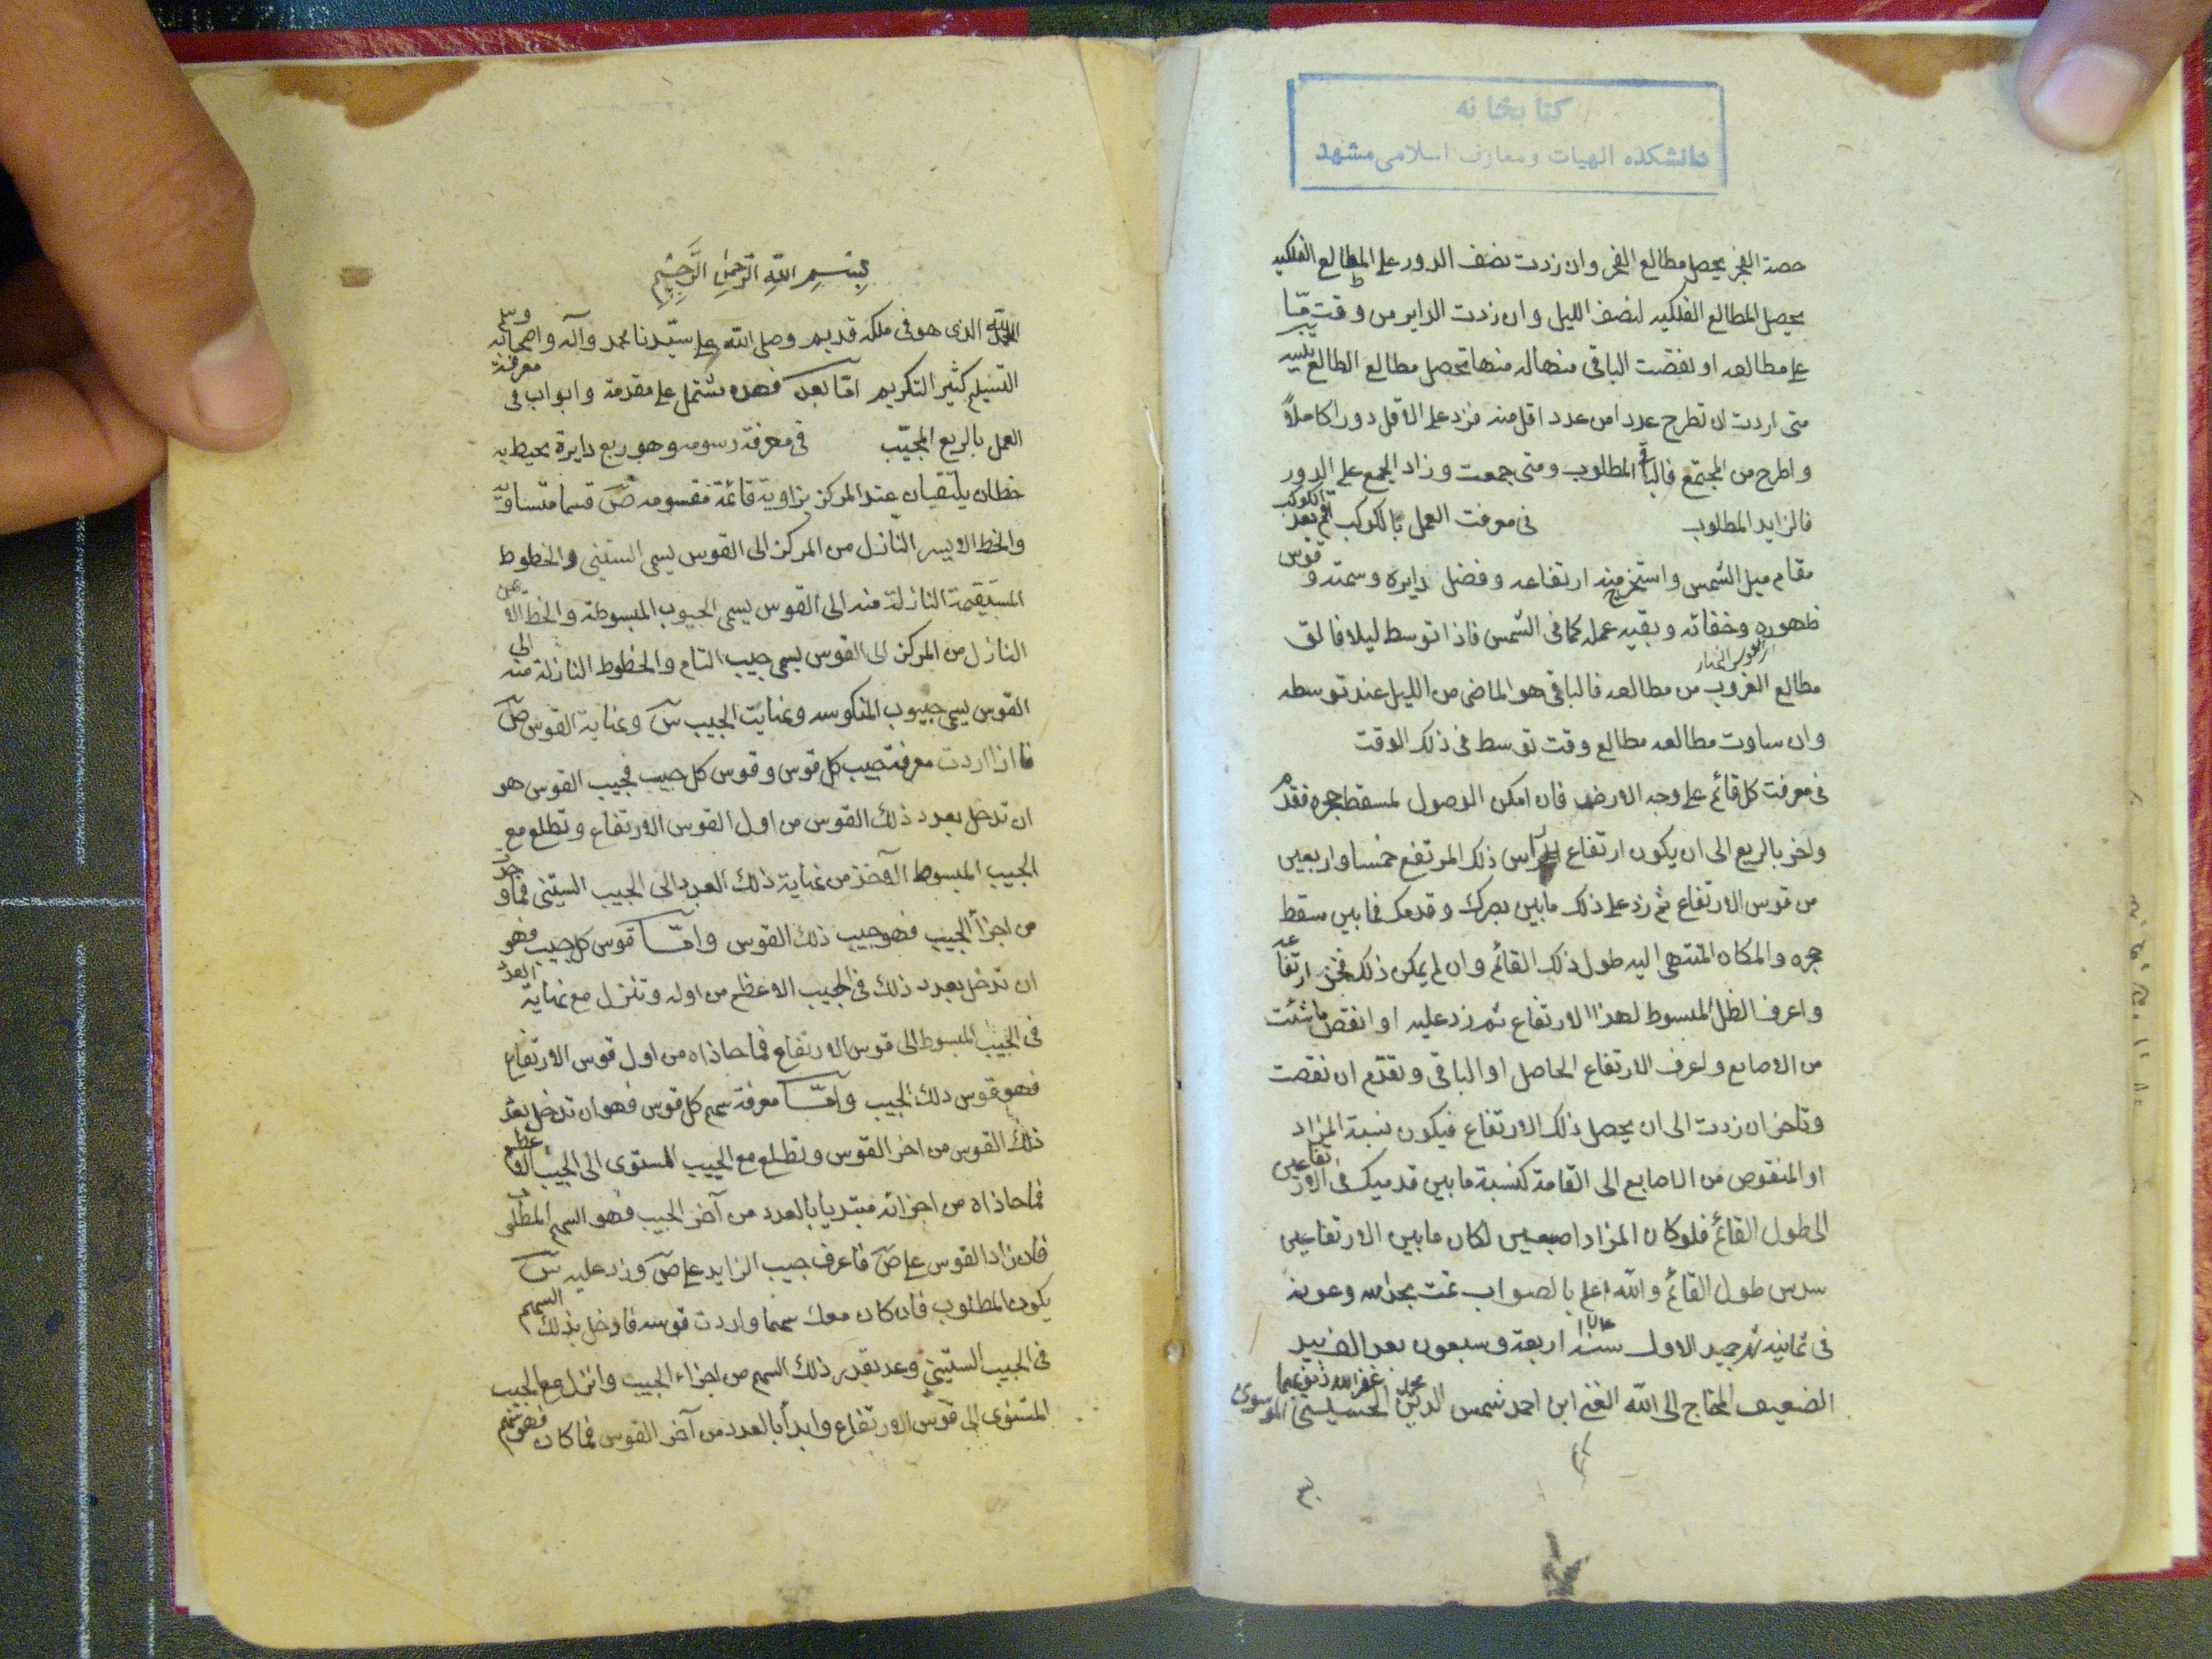 كتابخانه
دانشكده الهيات ومعارف اسلامى مشهد
حصة الفجر يحصل مطالع الفجر وان زدت نصف الدور على المطالع الفلكيه
يحصل المطالع الفلكيه لنصف الليل وان زدت الداير من وقت
على مطالعه او نقصت الباقى منها تحصل مطالع الطالع
متى اردت ان تطرح عددا من عدد اقل منه فزد على الاقل دورا كاملاً
واطرح من المجتمع فالباقى المطلوب ومتى جمعت وزاد الجمع على الدور
فالزايد المطلوب فى معرفت العمل بالكوكب اقم بعد الكوكب
مقام ميل الشمس واستخرج منه ارتفاعه وفضل دايره وسمته وقوس
ظهوره وخفائه وبقيه عمله كما فى الشمس فاذا توسط ليلا فالق
مطالع الغروب من مطالعه فالباقى هو الماضى من الليل عند توسطه
وان ساوت مطالعه مطالع وقت توسط فى ذلك الوقت
فى معرفت كل قائم على وجه الارض فان امكن الوصول لمسقط حجره فتقدم
واخر بالربع الى ان يكون ارتفاع رأس ذلك المرتفع خمسا واربعين
من قوس الارتفاع ثم زد على ذلك مابين بصرك وقدمك فما بين مسقط
حجره والمكان المنتهى اليه طول ذلك القائم وان لم يمكن ذلك فخذ ارتفاعه
واعرف الظل المبسوط لهذا الارتفاع ثم زد عليه او انقص ماشئت
من الاصابع واعرف الارتفاع الحاصل او الباقى وتقدم ان نقصت
وتاخر ان زدت الى ان يحصل ذلك الارتفاع فيكون نسبة المزاد
او المنقوص من الاصابع الى القامة كنسبة مابين قدميك فى الارتفاعين
الى طول القائم فلو كان المزاد اصبعين لكان مابين الارتفاعين
سدس طول القائم والله اعلم بالصواب تمت بحمد الله وعونه
فى ثمانيه شهر جميد الاول سنة اربعة وسبعون بعد الف بيد
الضعيف المحتاج الى الله الغنى ابن احمد شمس الدين محمد الحسينى الموسوى غفر الله ذنوبهما
بسم الله الرحمن الرحيم
الحمد لله الذى هو فى ملكه قديم وصلى الله على سيّدنا محمد وآله واصحابه وسلم
التسليم كثير التكريم امّا بعد فهذه تشتمل على مقدمة وابواب فى معرفة
العمل بالربع المجيّب فى معرفة رسومه وهو ربع دايرة يحيط به
خطان يلتقيان عند المركز بزاوية قائمة مقسومه ص قسما متساوية
والخط الايسر النازل من المركز الى القوس يسمى الستينى والخطوط
المستقيمة النازلة منه الى القوس يسمى الجيوب المبسوطة والخط الايمن
النازل من المركز الى القوس يسمى جيب التمام والخطوط النازلة منه الى
القوس يسمى جيوب المنكوسه ونهايت الجيب س ونهاية القوس ص
فاذا اردت معرفة جيب كل قوس وقوس كل جيب فجيب القوس هو
ان تدخل بعدد ذلك القوس من اول القوس الارتفاع وتطلع مع
الجيب المبسوط الآخذ من نهاية ذلك العدد الى الجيب الستينى فما وجد
من اجزأ الجيب فهو جيب ذلك القوس وامّا قوس كل جيب فهو
ان تدخل بعدد ذلك فى الجيب الاعظم من اوله وتنزل مع نهاية العدد
فى الجيب المبسوط الى قوس الارتفاع فما حاذاه من اول قوس الارتفاع
فهو قوس ذلك الجيب وامّا معرفة سهم كل قوس فهو ان تدخل بعدد
ذلك القوس من اخر القوس وتطلع مع الجيب المستوى الى الجيب الاعظم
فما حاذاه من اجزائه مبتديا بالعدد من آخر الجيب فهو السهم المطلوب
فان زاد القوس على ص فاعرف جيب الزايد على ص وزد عليه س
يكون المطلوب فان كان معك سهما واردت قوسه فادخل بذلك السهم
فى الجيب الستينى وعد بقدر ذلك السهم من اجزاء الجيب وانزل مع الجيب
المستوى الى قوس الارتفاع وابدأ بالعدد من آخر القوس فما كان فهو